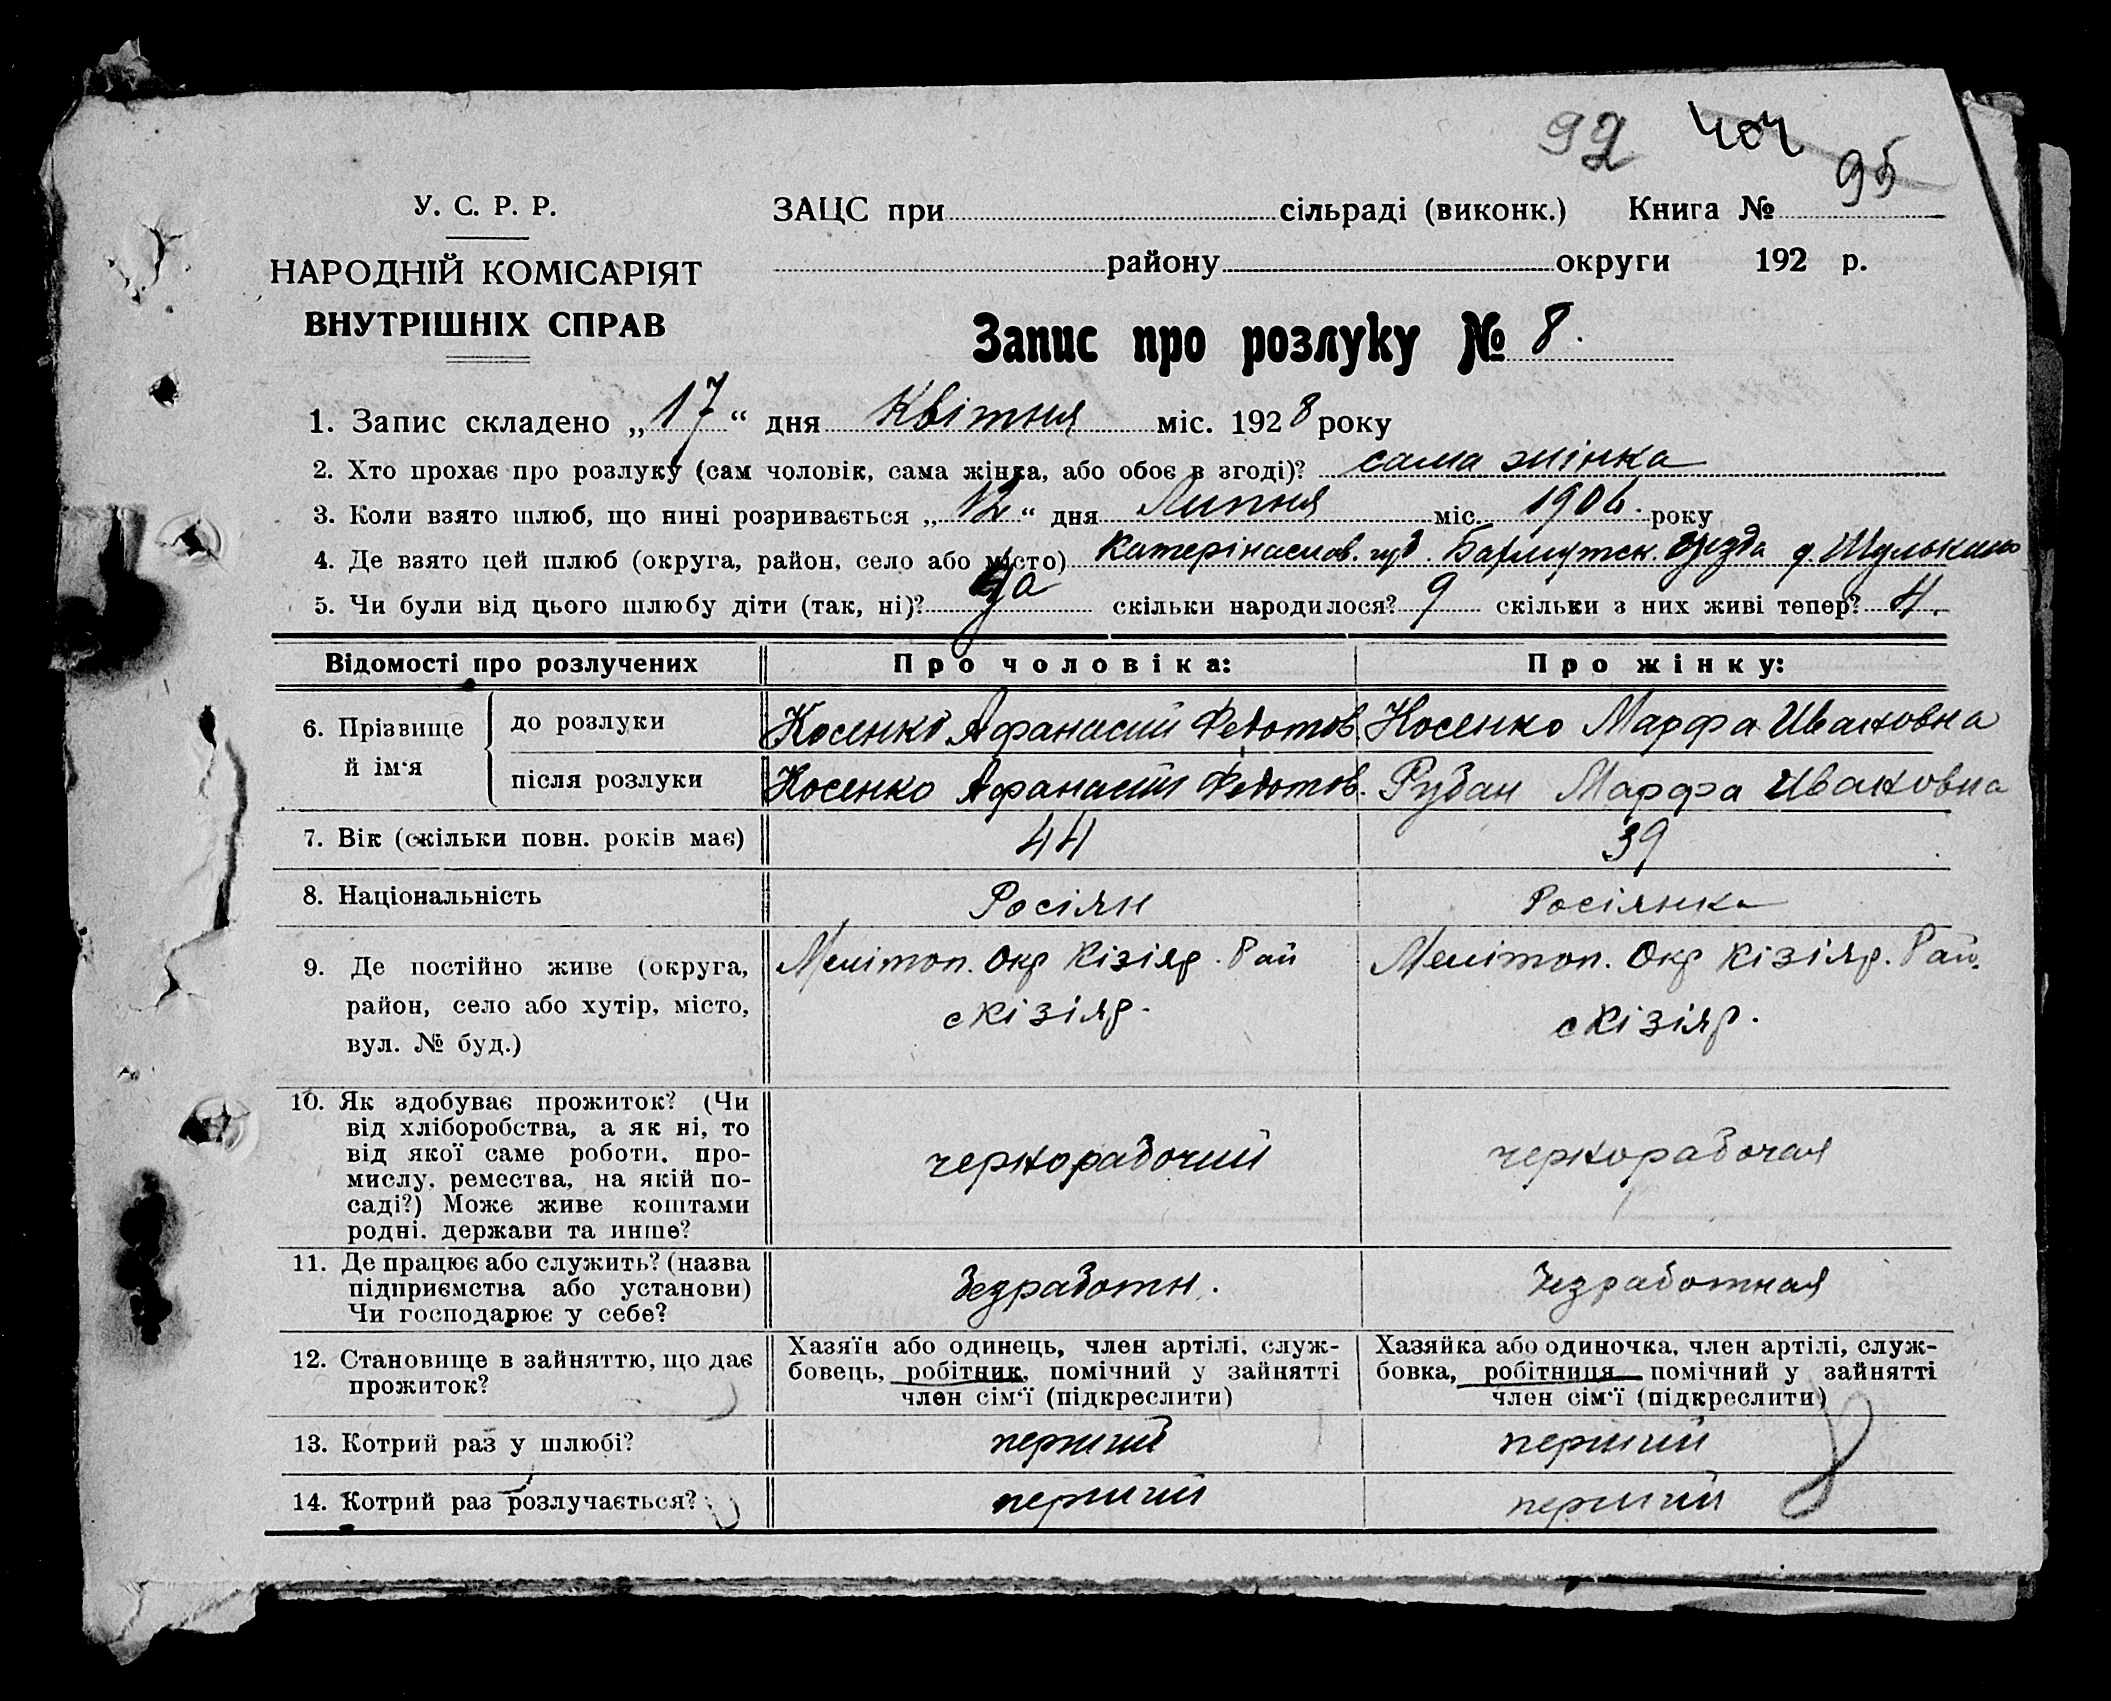 92 404 95
У. С. Р. Р.
НАРОДНІЙ КОМІСАРІЯТ
ВНУТРІШНІХ СПРАВ
ЗАЦС при сільраді (виконк.) Книга №
району округи 192 р.
Запис про розлуку № 8.
1. Запис складено „17“ дня Квітня міс. 1928 року
2. Хто прохає про розлуку (сам чоловік, сама жінка, або обоє в згоді)? сама жінка
3. Коли взято шлюб, що нині розривається „12“ дня Липня міс. 1906. року
4. Де взято цей шлюб (округа, район, село або місто) Катерінослов. губ. Бахмутск. уезда
5. Чи були від цього шлюбу діти (так, ні)? да скільки народилося? 9 скільки з них живі тепер? 4.
Відомості про розлучених Про чоловіка: Про жінку:
6. Прізвище й ім‘я
до розлуки Косенко Афанасий Федотов. Косенко Марфа Ивановна
після розлуки Косенко Афанасий Федотов. Рубан Марфа Ивановна
7. Вік (скільки повн. років має) 44 39
8. Національність Росіян Росіянка
9. Де постійно живе (округа, Мелітоп. Окр Кізіяр. Рай Мелітоп. Окр Кізіяр. Рай.
район, село або хутір, місто, с Кізіяр. с Кізіяр.
вул. № буд.)
10. Як здобуває прожиток? (Чи
від хліборобства, а як ні, то
від якої саме роботи, про-
мислу, ремества, на якій по- чернорабочий чернорабочая
саді?) Може живе коштами
родні, держави та инше?
11. Де працює або служить? (назва
підприємства або установи) безработн. безработная
Чи господарює у себе?
12. Становище в зайняттю, що дає
прожиток?
Хазяїн або одинець, член артілі, служ-
бовець, робітник, помічний у зайнятті
член сім‘ї (підкреслити)
Хазяйка або одиночка, член артілі, служ-
бовка, робітниця помічний у зайнятті
член сім‘ї (підкреслити)
13. Котрий раз у шлюбі? перший перший
14. Котрий раз розлучається? перший перший
8